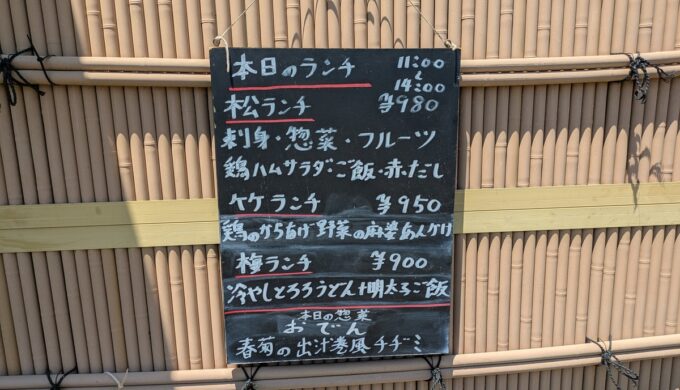 本日のランチ 11:00
〜
14:00
松ランチ ¥980
刺身・惣菜・フルーツ
鶏ハムサラダ・ご飯・赤だし
竹ランチ ¥950
鶏のからあげ 野菜の麻婆あんかけ
梅ランチ ¥900
冷やしとろろうどん+明太子ご飯
本日の惣菜
おでん
春菊の出汁巻風チヂミ